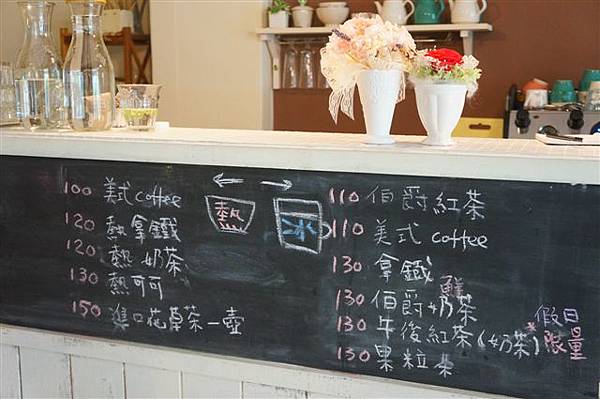 100 美式 coffee
120 熱拿鐵
120 熱奶茶
130 熱可可
150 進口花草茶一壺
熱
冰
110 伯爵紅茶
110 美式 coffee
130 拿鐵
130 伯爵鮮奶茶
130 午後紅茶(奶茶) *假日限量
130 果粒茶